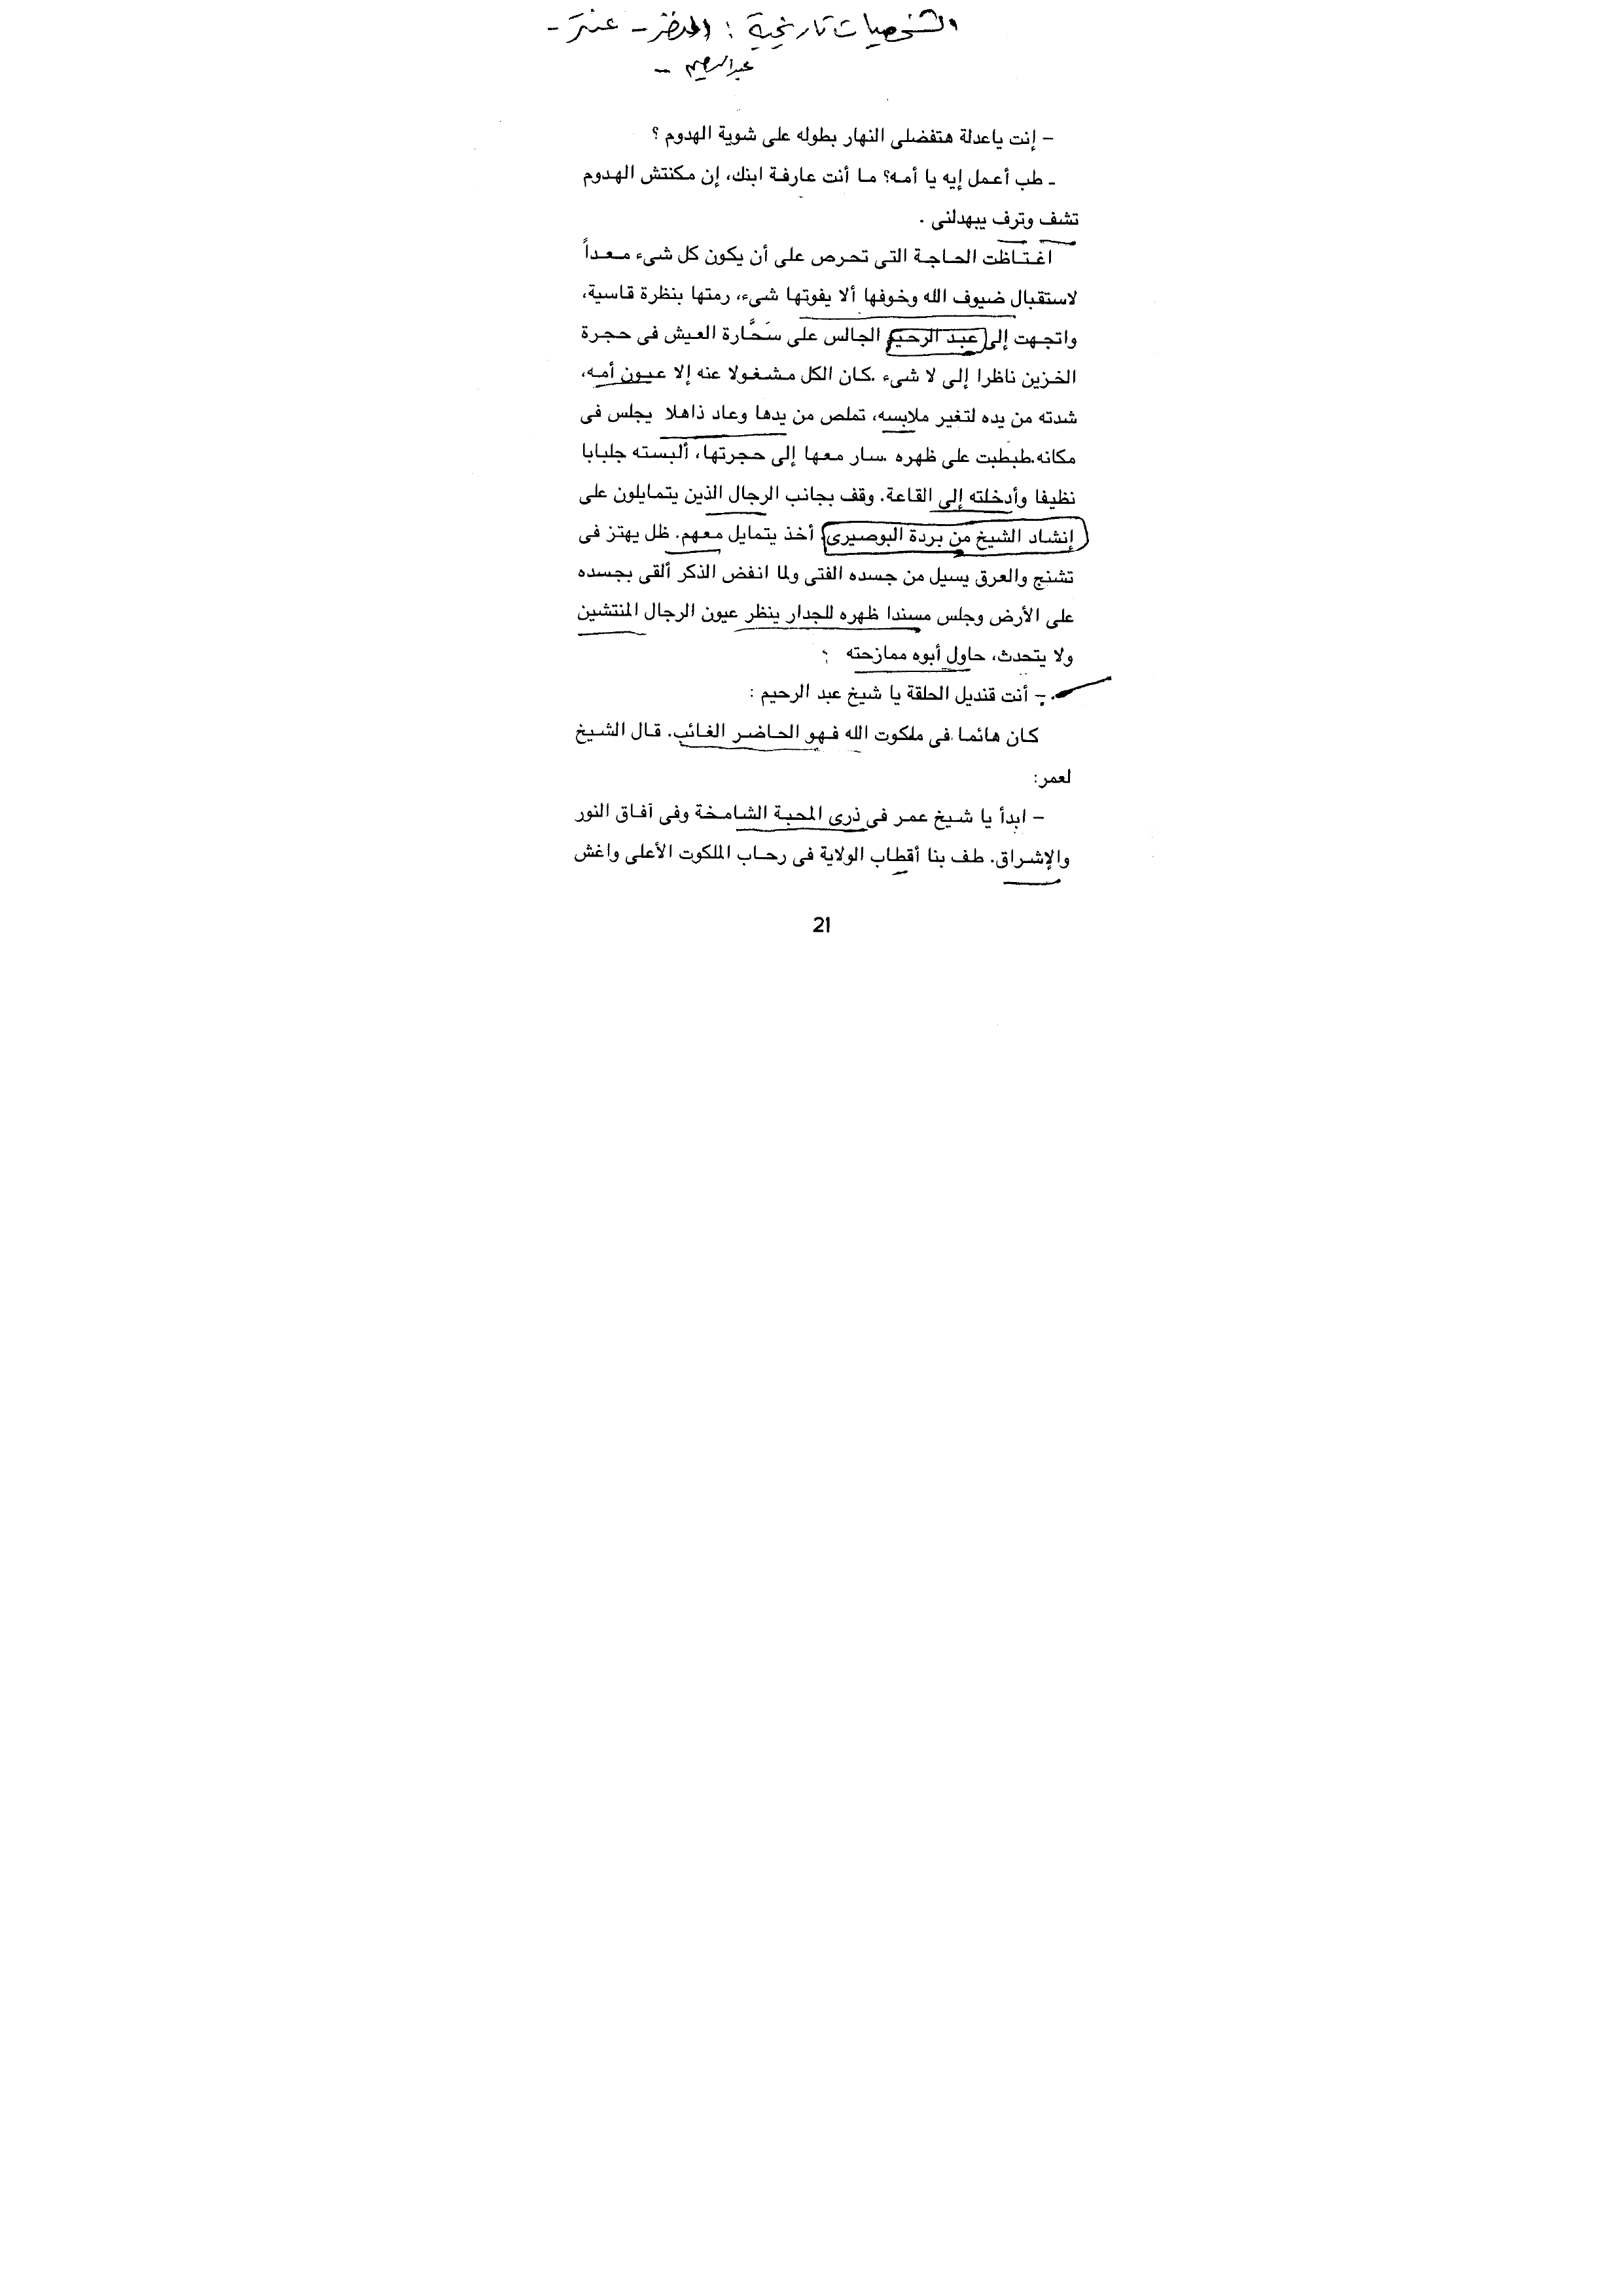 الشخصيات تاريخية : الخضر - عنتر -
عبد الرحيم -
– إنت ياعدلة هتفضلى النهار بطوله على شوية الهدوم ؟
ـ طب أعمل إيه يا أمه؟ ما أنت عارفة ابنك، إن مكنتش الهدوم
تشف وترف يبهدلنى .
اغتاظت الحاجة التى تحرص على أن يكون كل شىء معداً
لاستقبال ضيوف الله وخوفها ألا يفوتها شىء، رمتها بنظرة قاسية،
واتجهت إلى عبد الرحيم الجالس على سَحَّارة العيش فى حجرة
الخزين ناظرا إلى لا شىء .كان الكل مشغولا عنه إلا عيون أمه،
شدته من يده لتغير ملابسه، تملص من يدها وعاد ذاهلا يجلس فى
مكانه.طبطبت على ظهره .سار معها إلى حجرتها، ألبسته جلبابا
نظيفا وأدخلته إلى القاعة. وقف بجانب الرجال الذين يتمايلون على
إنشاد الشيخ من بردة البوصيرى، أخذ يتمايل معهم. ظل يهتز فى
تشنج والعرق يسيل من جسده الفتى ولما انفض الذكر ألقى بجسده
على الأرض وجلس مسندا ظهره للجدار ينظر عيون الرجال المنتشين
ولا يتحدث، حاول أبوه ممازحته :
– أنت قنديل الحلقة يا شيخ عبد الرحيم :
كان هائما فى ملكوت الله فهو الحاضر الغائب. قال الشيخ
لعمر:
– ابدأ يا شيخ عمر فى ذرى المحبة الشامخة وفى آفاق النور
والإشراق. طف بنا أقطاب الولاية فى رحاب الملكوت الأعلى واغش
21